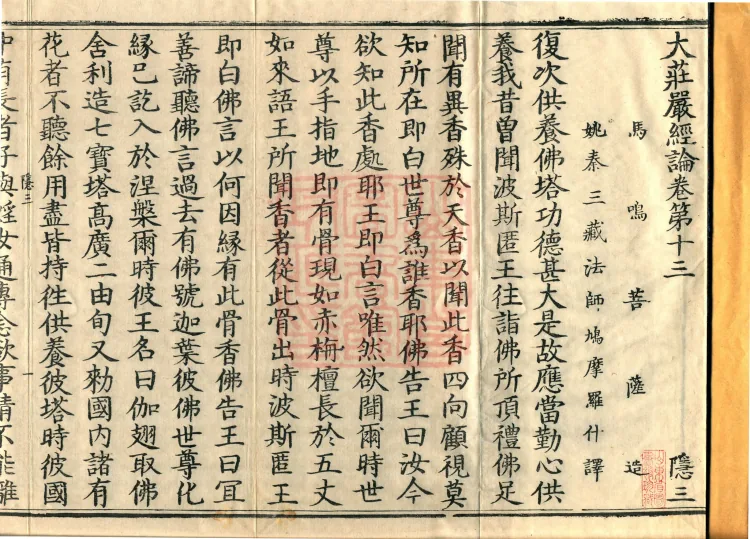 大莊嚴經論卷第十三 隱三
馬鳴菩薩造
姚秦三藏法師鳩摩羅什譯
復次供養佛塔功德甚大是故應當勤心供
養我昔曾聞波斯匿王往詣佛所頂禮佛足
聞有異香殊於天香以聞此香四向顧視莫
知所在即白世尊為誰香耶佛告王曰汝今
欲知此香處耶王即白言唯然欲聞爾時世
尊以手指地即有骨現如赤栴檀長於五丈
如來語王所聞香者從此骨出時波斯匿王
即白佛言以何因緣有此骨香佛告王曰宜
善諦聽佛言過去有佛號迦葉彼佛世尊化
緣已訖入於涅槃爾時彼王名曰伽翅取佛
舍利造七寶塔高廣二由旬又勑國內諸有
花者不聽餘用盡皆持徃供養彼塔時彼國
隱三 一
中有長者子與婬女通專念欲事情不能離